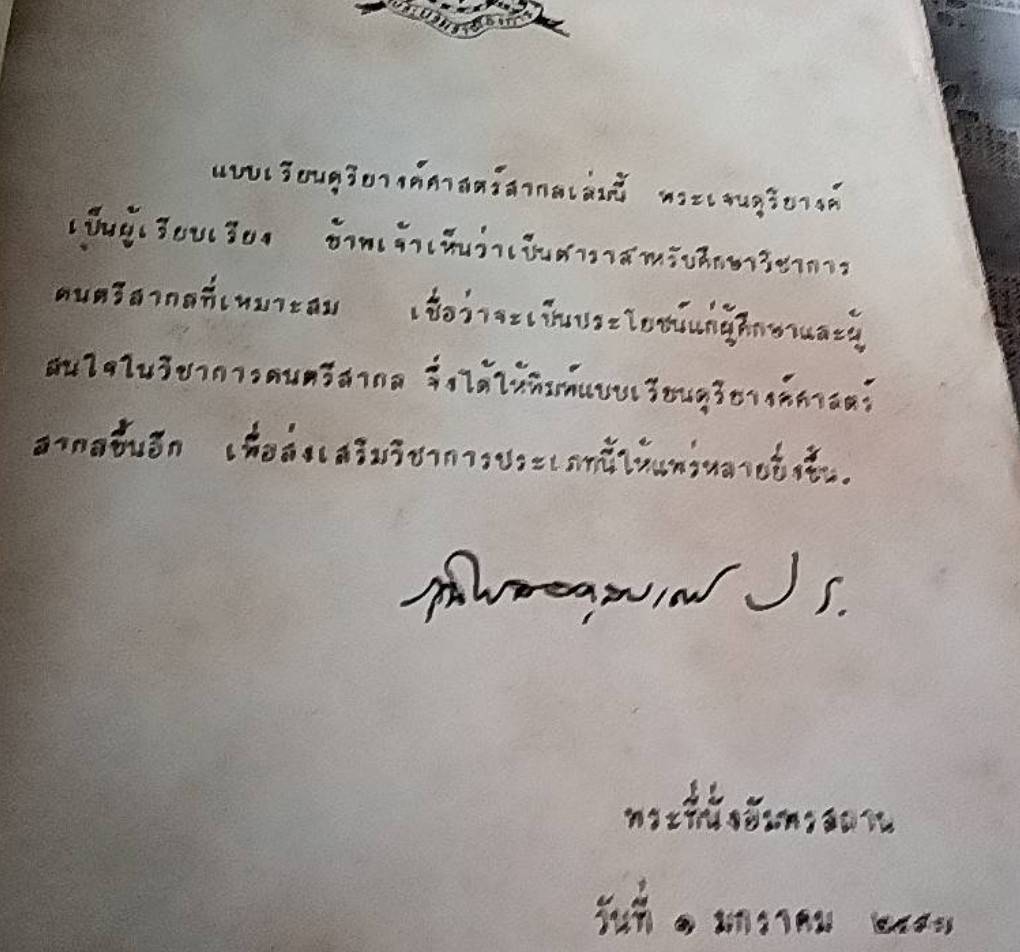 แบบเรียนดุริยางค์ศาสตร์สากลเล่มนี้ พระเจนดุริยางค์
เป็นผู้เรียบเรียง ข้าพเจ้าเห็นว่าเป็นตำราสำหรับศึกษาวิชาการ
ดนตรีสากลที่เหมาะสม เชื่อว่าจะเป็นประโยชน์แก่ผู้ศึกษาและผู้
สนใจในวิชาการดนตรีสากล จึงได้ให้พิมพ์แบบเรียนดุริยางค์ศาสตร์
สากลขึ้นอีก เพื่อส่งเสริมวิชาการประเภทนี้ให้แพร่หลายยิ่งขึ้น.
ภูมิพลอดุลยเดช ป ร.
พระที่นั่งอัมพรสถาน
วันที่ ๑ มกราคม